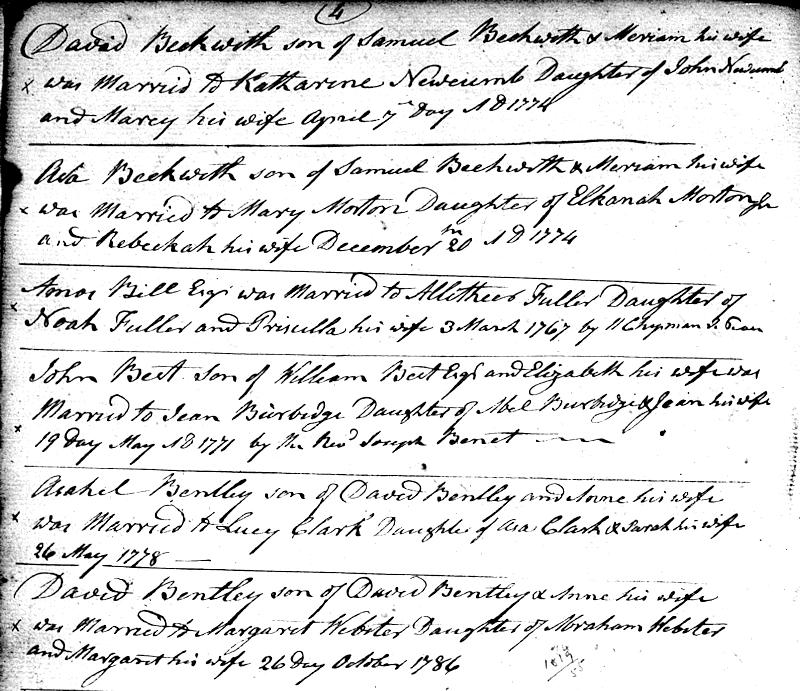 4
David Beckwith son of Samuel Beckwith & Meriam his wife
x was Married to Katharine Newcumb Daughter of John Newcumb
and Marcy his wife April 7th Day AD 1774
Asa Beckwith son of Samuel Beckwith & Meriam his wife
x was Married to Mary Morton Daughter of Elkanah Morton Jr
and Rebeckah his wife December 20th AD 1774
Amos Bill Esqr was Married to Allethea Fuller Daughter of
x Noah Fuller and Priscilla his wife 3 March 1767 by
John Best son of William Best Esqr and Elizabeth his wife was
Married to Jean Burbidge Daughter of Abel Burbidge & Jean his wife
x 19 Day May AD 1771 by the Revd Joseph Benet
Asahel Bentley son of David Bentley and Anne his wife
x was Married to Lucy Clark Daughter of Asa Clark & Sarah his wife
26 May 1778
David Bentley son of David Bentley & Anne his wife
x was Married to Margaret Webster Daughter of Abraham Webster
and Margaret his wife 26 Day October 1786